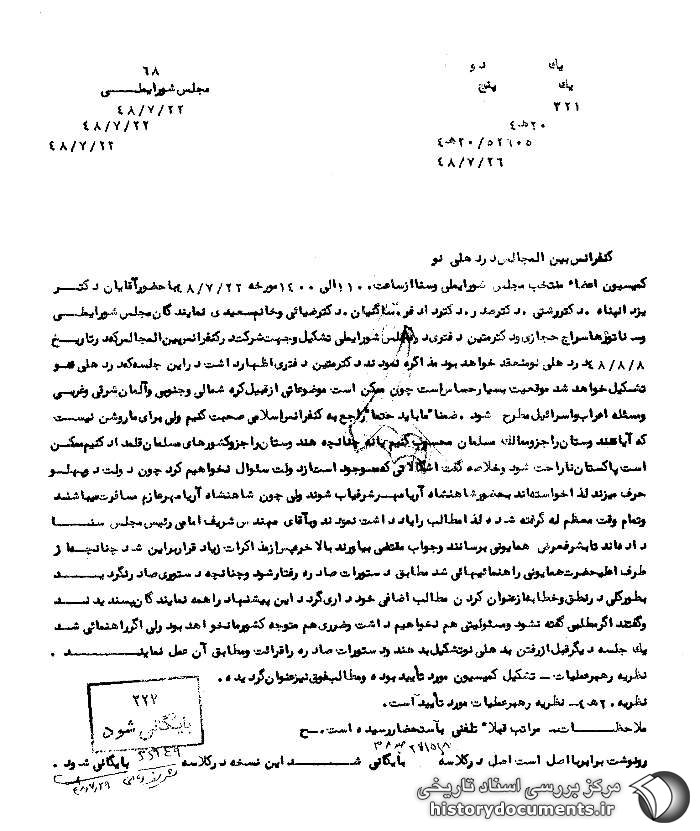 ۶۸
مجلس شورایملی
۴۸/۷/۲۲
۴۸/۷/۲۲
۴۸/۷/۲۲
یک دو
یک پنج
۳۲۱
۲۰هـ۴
۲۰/۵۲۶۰۵هـ۴
۴۸/۷/۲۶
کنفرانس بین المجالس در دهلی نو
کمیسیون اعضاء منتخب مجلس شورایملی وسنا از ساعت ۱۱۰۰ الی ۱۴۰۰ مورخه ۴۸/۷/۲۲ با حضور آقایان دکتر
یزد انپناه . دکتر رشتی . دکتر صدر . دکتر دادفر . ساگنیان . دکتر ضیائی وخانم سعیدی نمایندگان مجلس شورایملی
وسناتورها سراج حجازی ودکتر متین دفتری در مجلس شورایملی تشکیل وجهت شرکت در کنفرانس بین المجالس که در تاریخ
۴۸/۸/۸ در دهلی نو منعقد خواهد بود مذاکره نمودند دکتر متین دفتری اظهار داشت در این جلسه که در دهلی نو
تشکیل خواهد شد موقعیت بسیار حساس است چون ممکن است موضوعاتی از قبیل کره شمالی وجنوبی وآلمان شرقی وغربی
ومسئله اعراب واسرائیل مطرح شود . ضمنا" ما باید حتما" راجع به کنفرانس اسلامی صحبت کنیم ولی برای ما روشن نیست
که آیا هند وستان را جزو ممالک مسلمان محسوب کنیم یا نه چنانچه هند وستان را جزو کشورهای مسلمان قلمداد کنیم ممکن
است پاکستان ناراحت شود وخلاصه گفت اشکالاتی که موجود است از دولت سئوال نخواهیم کرد چون دولت دوپهلو
حرف میزند لذا خواسته اند بحضور شاهنشاه آریامهر شرفیاب شوند ولی چون شاهنشاه آریامهر عازم مسافرت میباشند
وتمام وقت معظم له گرفته شده لذا مطالب را یاد داشت نمودند وبآقای مهندس شریف امامی رئیس مجلس سنا
داده اند تا بشرفعرض همایونی برسانند وجواب مقتضی بیاورند بالاخره پس از مذاکرات زیاد قرار بر این شد چنانچه از
طرف اعلیحضرت همایونی راهنمائیهائی شد مطابق دستورات صادره رفتار شود وچنانچه دستوری صادر نگردید
بطورکلی در نطق وخطابه از عنوان کردن مطالب اضافی خود داری گردد این پیشنهاد را همه نمایندگان پسندیدند
وگفتند اگر مطلبی گفته نشود ومسئولیتی هم نخواهیم داشت وضرری هم متوجه کشور ما نخواهد بود ولی اگر راهنمائی شد
یک جلسه دیگر قبل از رفتن به دهلی نو تشکیل بدهند ودستورات صادره را قرائت ومطابق آن عمل نمایند .
نظریه رهبر عملیات ـ تشکیل کمیسیون مورد تأیید بوده ومطالب فوق نیز عنوان گردیده .
نظریه ۲۰هـ۴ ـ نظریه رهبر عملیات مورد تأیید است .
ملاحظات ـ مراتب قبلا" تلفنی باستحضار رسیده است . ح
رونوشت برابر با اصل است اصل در کلاسه ۲۷۱۵۱۸ بایگانی شد این نسخه در کلاسه بایگانی شود .
۲۲۲
بایگانی شود
مرکز بررسی اسناد تاریخی
historydocuments.ir